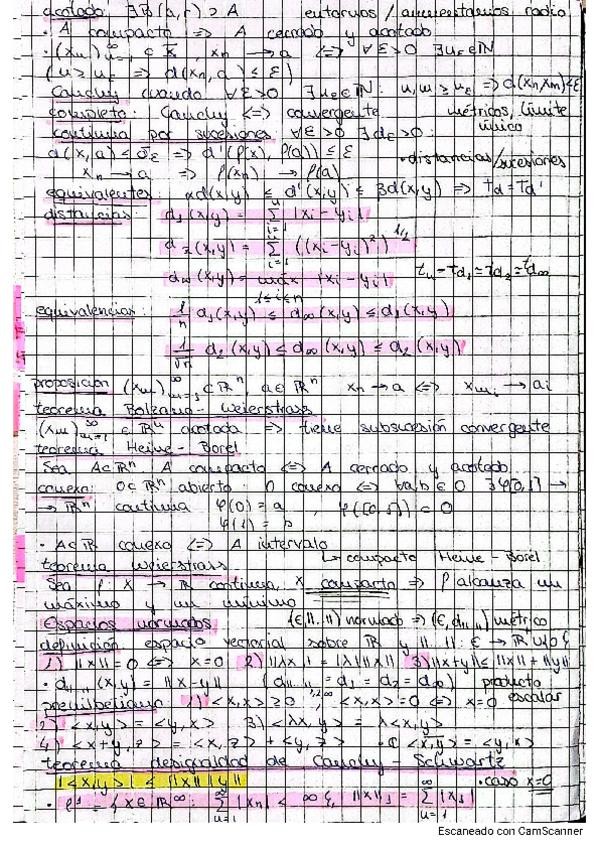 acotado: ∃ B(a,r) ⊃ A entornos / aumentamos radio
· A compacto => A cerrado y acotado
· (xn)∞n=1 ⊂ X, xn → a <=> ∀ε>0 ∃nε∈ℕ
(n ≥ nε => d(xn,a) ≤ ε)
Cauchy cuando ∀ε>0 ∃nε∈ℕ: n,m ≥ nε => d(xn,xm)<ε
completo: Cauchy <=> convergente métricos, límite único
continua por sucesiones ∀ε>0 ∃δε>0:
d(x,a) ≤ δε => d'(f(x), f(a)) ≤ ε · distancias/sucesiones
xn → a => f(xn) → f(a)
equivalentes: αd(x,y) ≤ d'(x,y) ≤ βd(x,y) => Td = Td'
distancias d1(x,y) = Σ |xi − yi|
d2(x,y) = Σ ((xi − yi)²)1/2
d∞(x,y) = máx |xi − yi| 1≤i≤n tu = td1 = td2 = td∞
equivalencias: 1/n d1(x,y) ≤ d∞(x,y) ≤ d1(x,y)
1/√n d2(x,y) ≤ d∞(x,y) ≤ d2(x,y)
proposición (xm)∞m=1 ⊂ ℝⁿ, a∈ℝⁿ xn → a <=> xmi → ai
teorema Bolzano - Weierstrass
(xm)∞m=1 ⊂ ℝⁿ acotada => tiene subsucesión convergente
teorema Heine - Borel
Sea A⊂ℝⁿ A compacto <=> A cerrado y acotado
conexo: O⊂ℝⁿ abierto. O conexo <=> ∀a,b ∈ O ∃φ[0,1] →
→ ℝⁿ continua φ(0) = a , φ([0,1]) ⊂ O
φ(1) = b
· A⊂ℝ conexo <=> A intervalo
teorema Weierstrass ↳ compacto Heine - Borel
Sea f: X → ℝ continua, X compacto => f alcanza un
máximo y un mínimo
Espacios normados (E,||.||) normado => (E, d||.||) métrico
definición espacio vectorial sobre ℝ y ||.||: E → ℝ
1) ||x|| = 0 <=> x=0 2) ||λx|| = |λ| ||x|| 3) ||x+y|| ≤ ||x|| + ||y||
· d||.||(x,y) = ||x−y|| (d||.|| = d1 = d2 = d∞) producto escalar
prehilbertiano 1) <x,x> ≥ 0, <x,x> = 0 <=> x=0
2) <x,y> = <y,x> 3) <λx,y> = λ<x,y>
4) <x+y,z> = <x,z> + <y,z> · ℂ <x,y> = <y,x>
teorema desigualdad de Cauchy - Schwartz
|<x,y>| ≤ ||x|| ||y|| · caso x=0
· ℓ1 = { x∈ℝ∞: Σ |xn| < ∞ }, ||x||1 = Σ |xj|
Escaneado con CamScanner